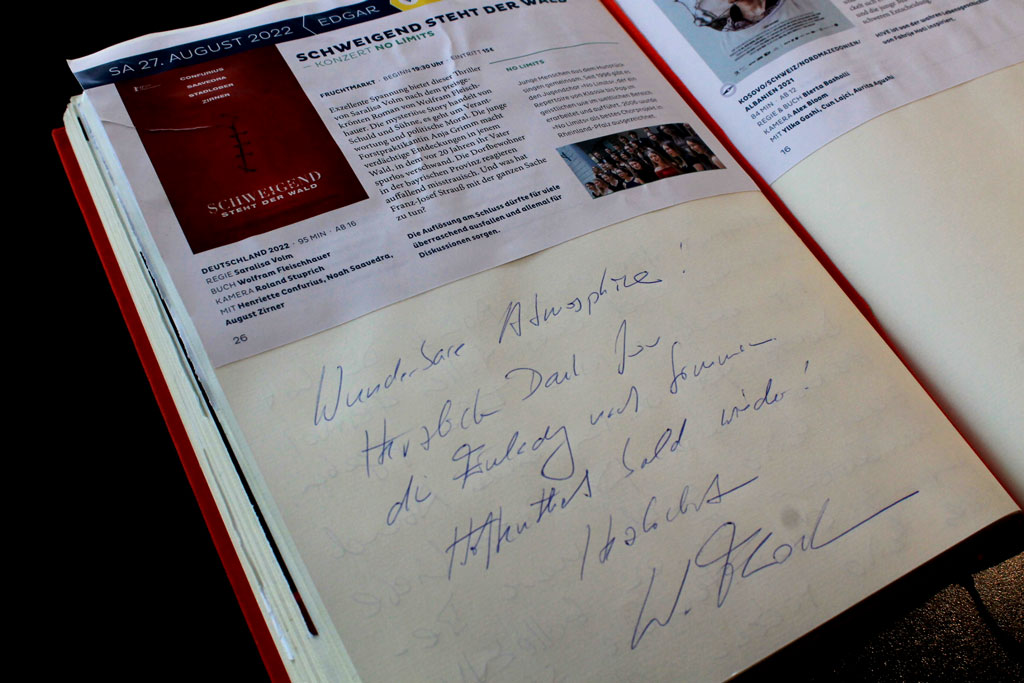 SA 27. AUGUST 2022 / EDGAR
SCHWEIGEND STEHT DER WALD
– KONZERT NO LIMITS
CONFURIUS
SAAVEDRA
STADLOBER
ZIRNER
SCHWEIGEND
STEHT DER WALD
FRUCHTMARKT · BEGINN 19:30 UHR · EINTRITT 15€
Exzellente Spannung bietet dieser Thriller
von Saralisa Volm nach dem preisge-
krönten Roman von Wolfram Fleisch-
hauer. Die mysteriöse Story handelt von
Schuld und Sühne, es geht um Verant-
wortung und politische Moral. Die junge
Forstpraktikantin Anja Grimm macht
verdächtige Entdeckungen in jenem
Wald, in dem vor 20 Jahren ihr Vater
spurlos verschwand. Die Dorfbewohner
in der bayrischen Provinz reagieren
auffallend misstrauisch. Und was hat
Franz-Josef Strauß mit der ganzen Sache
zu tun?
Die Auflösung am Schluss dürfte für viele
überraschend ausfallen und allemal für
Diskussionen sorgen.
NO LIMITS
Junge Menschen aus dem Hunsrück
singen gemeinsam. Seit 1996 gibt es
den Jugendchor »No Limits« der sein
Repertoire von Klassik bis Pop im
erarbeitet und im weltlichen Bereich
»No Limits« als bester Chor in
Rheinland-Pfalz ausgezeichnet.
DEUTSCHLAND 2022 · 95 MIN · AB 16
REGIE Saralisa Volm
BUCH Wolfram Fleischhauer
KAMERA Roland Stuprich
MIT Henriette Confurius, Noah Saavedra,
August Zirner
26
Wunderbare Atmosphäre!
Herzlich Dank für
die Einladung nach Simmern.
Hoffentlich bald wieder!
Herzlichst
KOSOVO/SCHWEIZ/NORDMAZEDONIEN/
ALBANIEN 2021
REGIE & BUCH Blerta Basholli
KAMERA Alex Bloom
MIT Yllka Gashi, Cun Lajci, Aurita Agushi
16
HIVE ist von der wahren Lebensgeschichte
von Fahrije Hoti inspiriert.